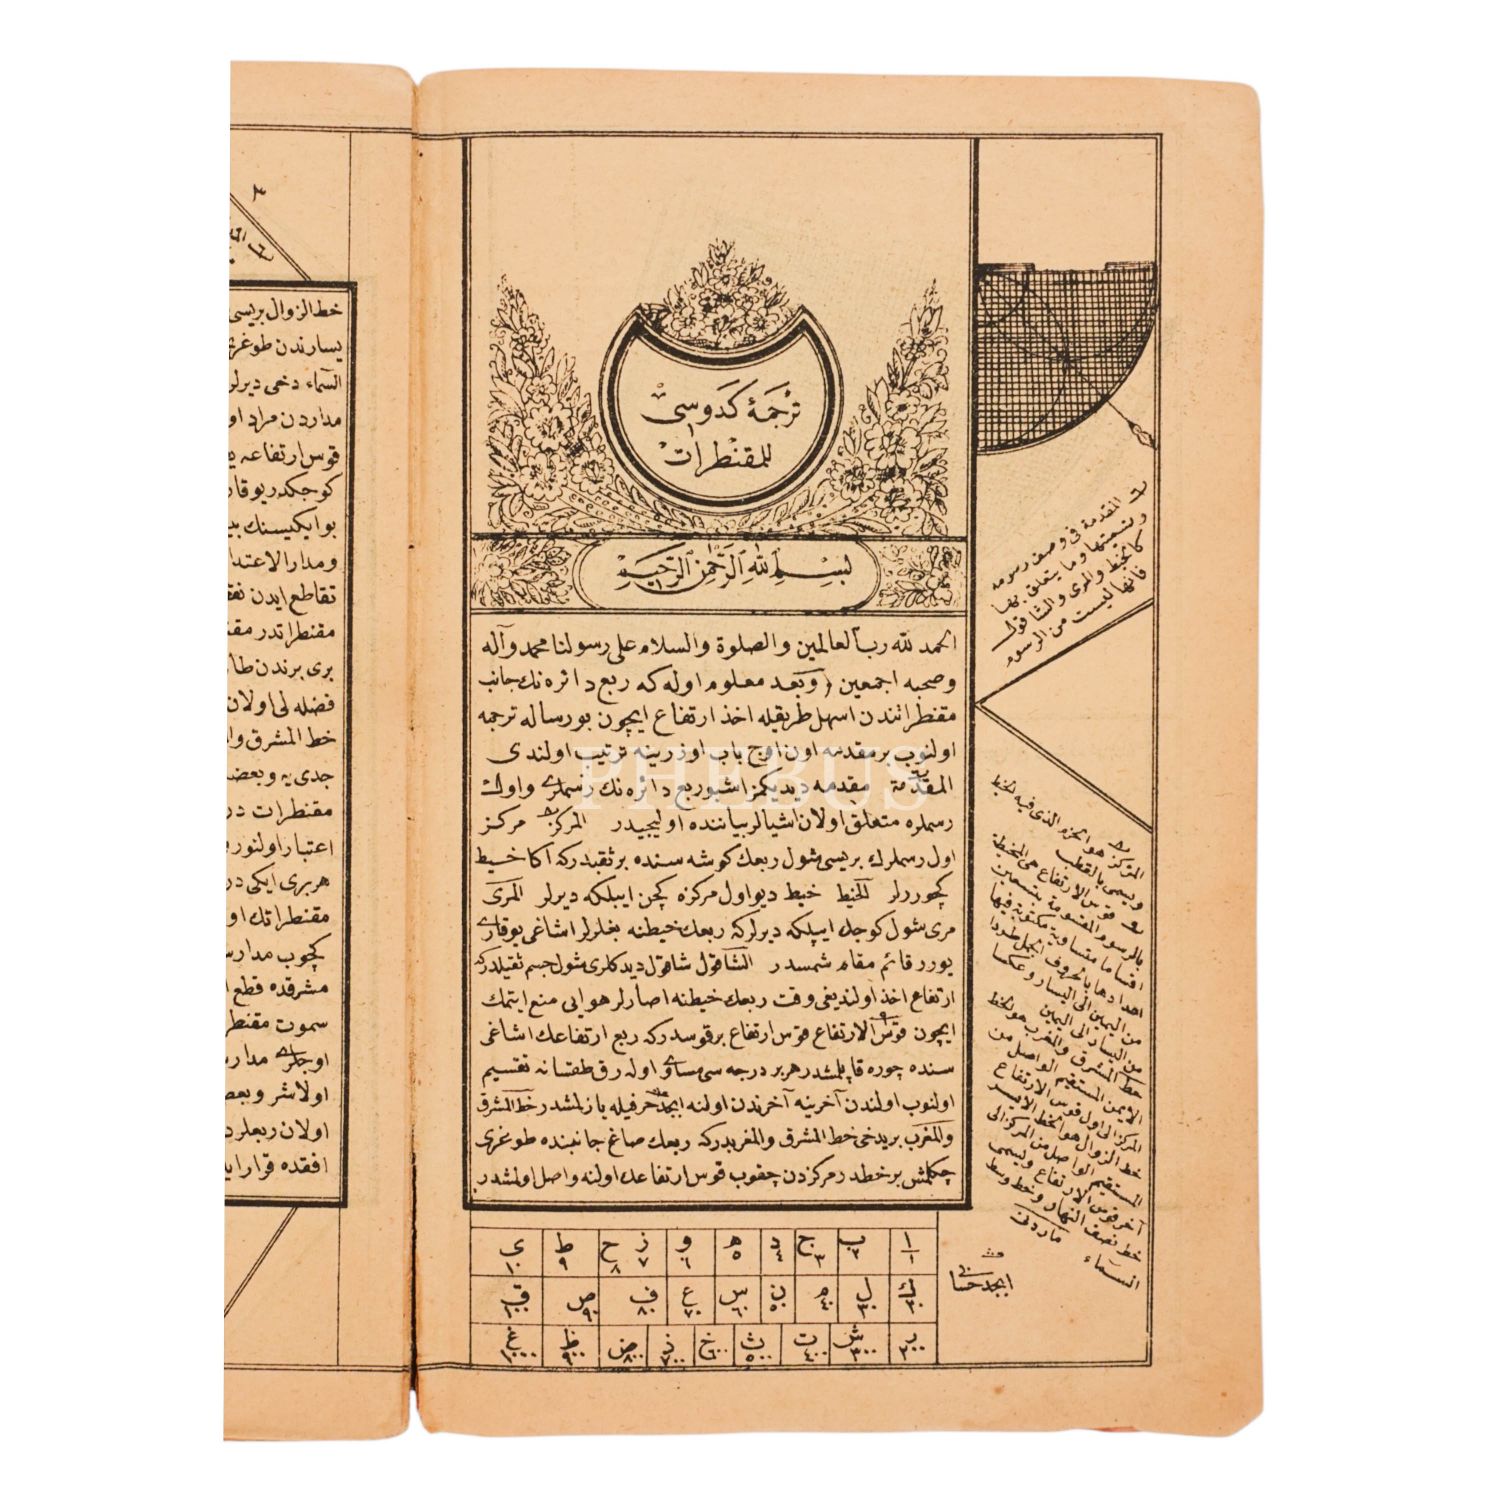 ترجمهٔ كدوسی
للمقنطرات
بسم الله الرحمن الرحيم
الحمد لله رب العالمين والصلوة والسلام علی رسولنا محمد وآله
وصحبه اجمعين وبعد معلوم اوله كه ربع دائره نك جانب
مقنطراتندن اسهل طريقله اخذ ارتفاع ايچون بو رساله ترجمه
اولنوب بر مقدمه اون اوچ باب اوزرينه ترتيب اولندی
المقدمة مقدمه ديديكمز اشبو ربع دائره نك رسملری واول
رسملره متعلق اولان اشيالر بياننده اوليجيدر المركز مركز
اول رسملرك بريسی شول ربعك كوشه سنده بر ثقبدركه اكا خيط
كچوررلر الخيط خيط ديو اول مركزه كچن ايپلكه ديرلر المری
مری شول كوجك ايپلكه ديرلركه ربعك خيطنه بغلرلر اشاغی يوقاری
يورر قائم مقام شمسدر الشاقول شاقول ديدكلری شول جسم ثقيلدركه
ارتفاع اخذ اولنديغی وقت ربعك خيطنه اصارلر هوايی منع ايتمك
ايچون قوس الارتفاع قوس ارتفاع بر قوسدركه ربع ارتفاعك اشاغی
سنده چوره قاپلمشدر هر بر درجه سی مساوی اوله رق طقسانه تقسيم
اولنوب اولندن آخرينه آخرندن اولنه ابجد حرفيله يازلمشدر خط المشرق
والمغرب بريدخی خط المشرق والمغربدركه ربعك صاغ جانبنده طوغری
چكلمش بر خطدر مركزدن چقوب قوس ارتفاعك اولنه واصل اولمشدر
المقدمة فی وصف رسومه
وتسميتها وما يتعلق بها
كالخيط والمری والشاقول
فانها ليست من الرسوم
المركز هو الخرم الذی فيه الخيط
ويسمی بالقطب
قوس الارتفاع هی المحيطة
بالرسوم المقسومة بتسعين
اقساما متساوية مكتوبة فيها
اعدادها بالحروف الجمل طردا
من اليمين الی اليسار وعكسا
من اليسار الی اليمين
خط المشرق والمغرب هو الخط
الايمن المستقيم الواصل من
المركز الی اول قوس الارتفاع
خط الزوال هو الخط الايسر
المستقيم الواصل من المركز الی
آخر قوس الارتفاع ويسمی
خط نصف النهار وخط وسط
السماء ماردنی
ابجد حسابی
ا ب ج د ه و ز ح ط ی
١ ٢ ٣ ٤ ٥ ٦ ٧ ٨ ٩ ١٠
ك ل م ن س ع ف ص ق
٢٠ ٣٠ ٤٠ ٥٠ ٦٠ ٧٠ ٨٠ ٩٠ ١٠٠
ر ش ت ث خ ذ ض ظ غ
٢٠٠ ٣٠٠ ٤٠٠ ٥٠٠ ٦٠٠ ٧٠٠ ٨٠٠ ٩٠٠ ١٠٠٠
٣
خط الزوال بريسی
يسارندن طوغری
السماء دخی ديرلر
مداردن مراد
قوس ارتفاعه
كوجكدر يوقار
بو ايكيسنك
ومدار الاعتدا
تقاطع ايدن نقط
مقنطراتدر مقن
بری برندن
فضله لی اولان
خط المشرق وا
جدی يه وبعض
مقنطرات در
اعتبار اولنور
هر بری ايكی در
مقنطراتك او
كچوب مدار
مشرقده قطع
سموت مقنطر
اوجلری مدار
اولاشر وبعض
اولان ربعلر
افقده قرار
PHEBUS